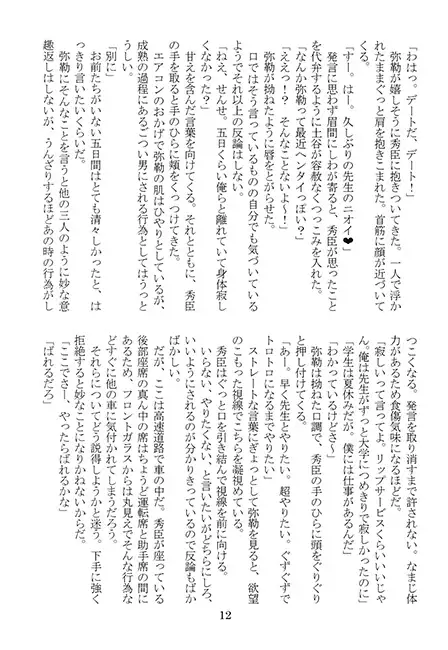 「わはっ。デートだ、デート！」
　弥勒が嬉しそうに秀臣に抱きついてきた。一人で浮か
れたままぐっと肩を抱きこまれた。首筋に顔が近づいて
くる。
「すー。はー。久しぶりの先生のニオイ♥」
　発言に思わず眉間にしわが寄ると、秀臣が思ったこと
を代弁するように土谷が容赦なくつっこみを入れた。
「なんか弥勒って最近ヘンタイっぽい？」
「ええっ！？　そんなことないよ～！」
　弥勒が拗ねたように唇をとがらせた。
　口ではそう言っているものの自分でも気づいている
ようでそれ以上の反論はしない。
「ねえ、せんせ。五日くらい俺らと離れていて身体寂し
くなかった？」
　甘えを含んだ言葉を向けてくる。それとともに、秀臣
の手を取ると手のひらに頬をくっつけてきた。
　エアコンのおかげで弥勒の肌はひやりとしているが、
成熟の過程にあるごつい男にされる行為としてはうっと
うしい。
「別に」
　お前たちがいない五日間はとても清々しかったと、は
っきり言いたいくらいだ。
　弥勒にそんなことを言うと他の三人のように妙な意
趣返しはしないが、うんざりするほどあの時の行為がし
つこくなる。発言を取り消すまで許されない。なまじ体
力があるため食傷気味になるほどだ。
「寂しいって言ってよ。リップサービスくらいいいじゃ
ん。俺は先生がずっと大学につめきりで寂しかったのに」
「学生は夏休みだが、僕には仕事があるんだ」
「わかっているけどさ～」
　弥勒は拗ねた口調で、秀臣の手のひらに頭をぐりぐり
と押し付けてくる。
「あー。早く先生とやりたい。超やりたい。ぐずぐずで
トロトロになるまでやりたい」
　ストレートな言葉にぎょっとして弥勒を見ると、欲望
のこもった視線でこちらを凝視めている。
　秀臣はぐっと口を引き結んで視線を前に向ける。
　いらない、やりたくない、と言いたいがどちらにしろ、
いいようにされるのが分かりきっているので反論もばか
ばかしい。
　だが、ここは高速道路で車の中だ。秀臣が座っている
後部座席の真ん中の席はちょうど運転席と助手席の間に
あるため、フロントガラスからは丸見えでそんな行為な
どすぐに他の車に気付かれてしまうだろう。
　それらについてどう説得しようかと迷う。下手に強く
拒絶すると妙なことになりかねないからだ。
「ここでさー、やったらばれるかな」
「ばれるだろ」
12